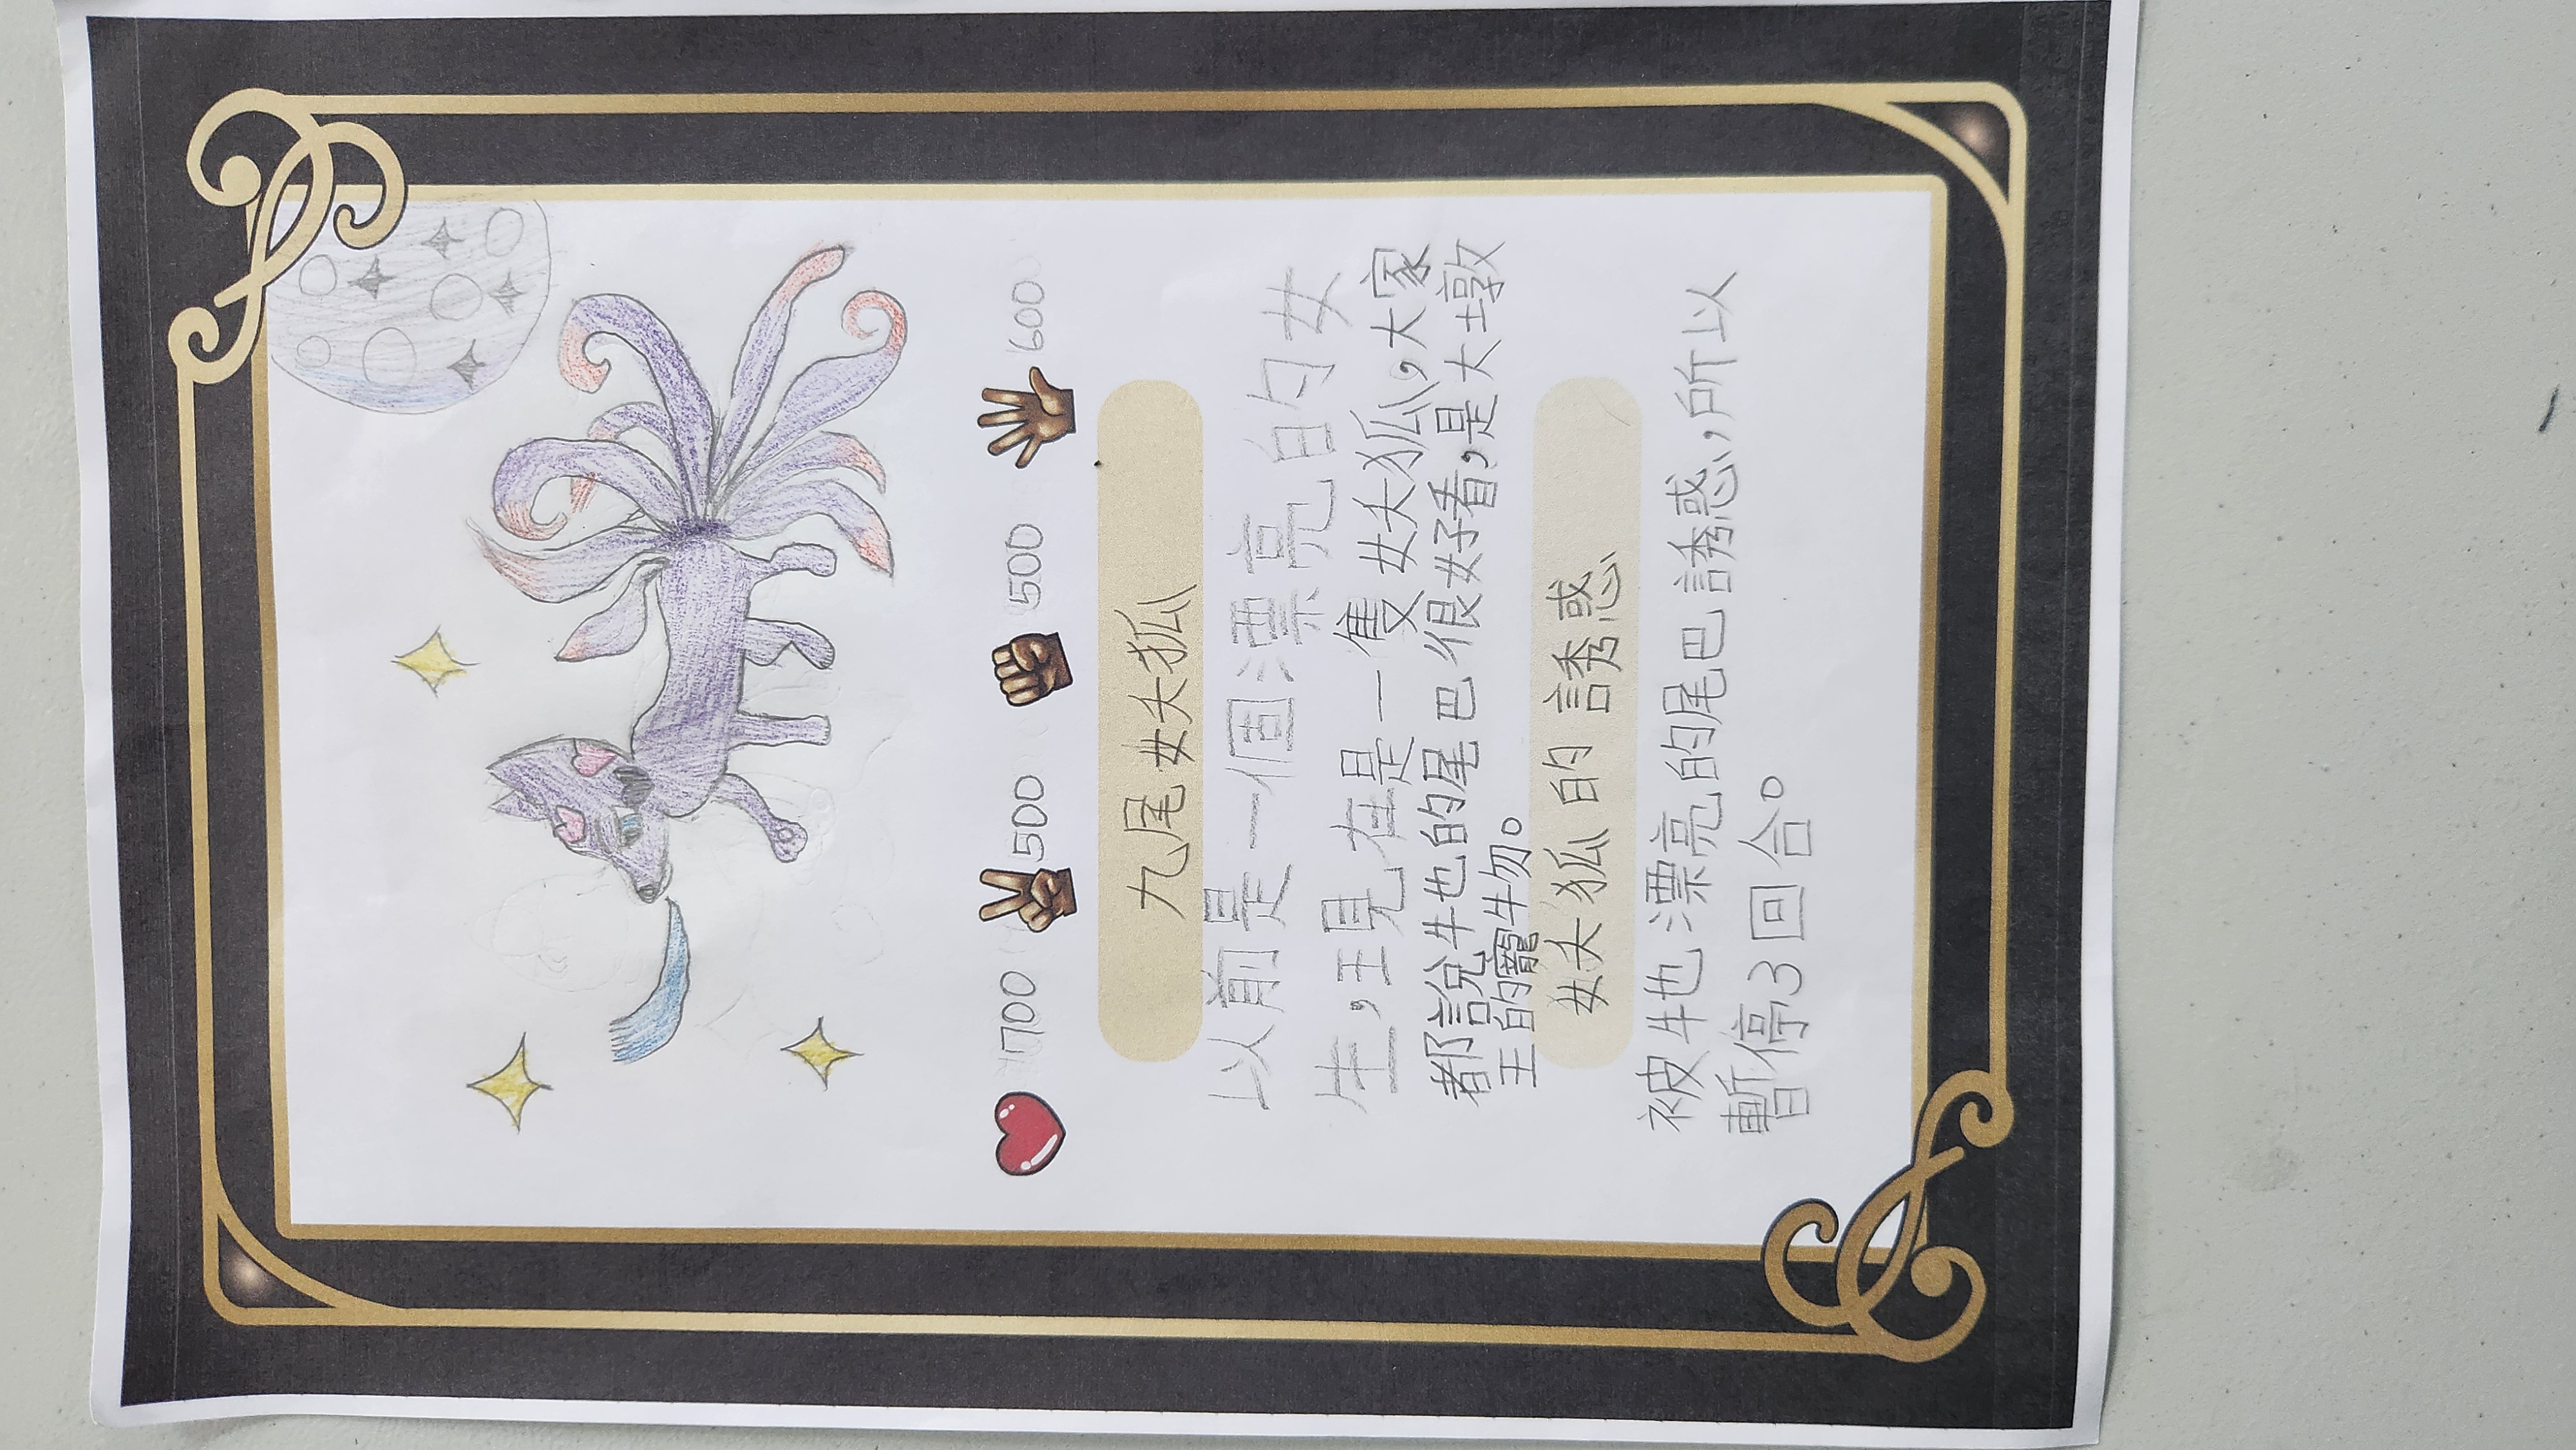 1700 500 500 600
九尾妖狐
以前是一個漂亮的女
生,現在是一隻妖狐,大家
都說牠的尾巴很好看,是大墩
王的寵物。
妖狐的誘惑
被牠漂亮的尾巴誘惑,所以
暫停3回合。